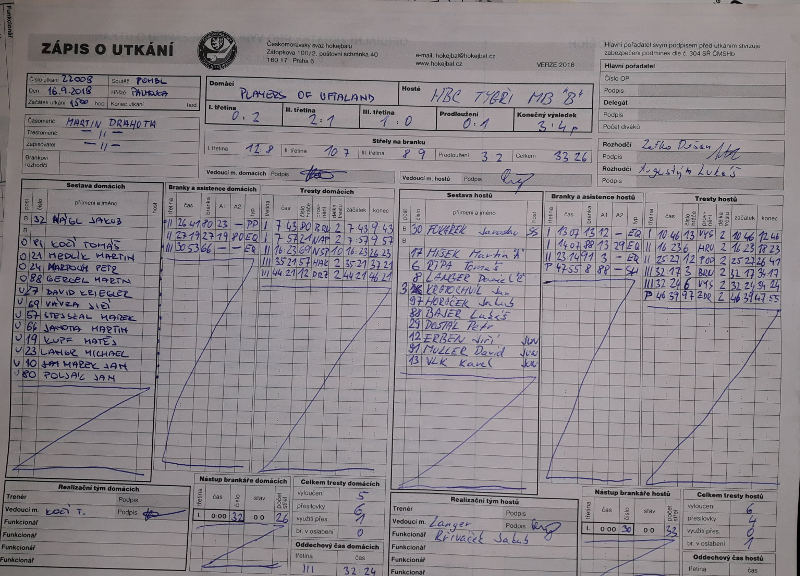 ZÁPIS O UTKÁNÍ
Českomoravský svaz hokejbalu
Zátopkova 100/2, poštovní schránka 40
160 17 Praha 6
e-mail: hokejbal@hokejbal.cz
www.hokejbal.cz
VERZE 2018
Hlavní pořadatel svým podpisem před utkáním stvrzuje
zabezpečení podmínek dle č. 304 SŘ ČMSHb
Hlavní pořadatel
Číslo OP
Podpis
Delegát
Podpis
Počet diváků
Číslo utkání 22008 Soutěž
Den 16.9.2018 Hřiště
Začátek utkání hod Konec utkání hod
Domácí PLAYERS OF UHALAND
Hosté HBC TYGŘI MB "B"
I. třetina II. třetina III. třetina Prodloužení Konečný výsledek
0:2 2:1 1:0 0:1 3:4p
Střely na branku
I. třetina 12 8 II. třetina 10 7 III. třetina 8 9 Prodloužení 3 2 Celkem 33 26
Vedoucí m. domácích Podpis
Vedoucí m. hostů Podpis
Časoměřič MARTIN DRAHOTA
Trestoměřič — II —
Zapisovatel — II —
Brankoví rozhodčí
Rozhodčí
Podpis
Rozhodčí Augustýn Lukáš
Podpis
Sestava domácích
Branky a asistence domácích
Tresty domácích
Sestava hostů
Branky a asistence hostů
Tresty hostů
příjmení a jméno
třetina čas branka A1 A2 typ
začátek konec
32 NÁGL JAKUB
KOČÍ TOMÁŠ
21 HEDLÍK MARTIN
24 MARTOUN PETR
88 GERGEL MARTIN
27 DAVID KRIEGLER
69 VÁVRA JIŘÍ
57 STEJSKAL MAREK
66 JANOTA MARTIN
19 KUPF MATĚJ
23 LANGR MICHAEL
10 JAN MAREK JAN
80 POLJAK JAN
II 26 41 80 23 — PP
II 23 19 27 19 80 EQ
III 30 53 66 — — EQ
I 7 43 80 BRU 2 7 43 9 43
I 7 57 21 NAP 2 7 57 9 57
II 16 23 69 NSP 10 16 23 26 23
III 35 21 57 HAK 2 35 21 37 21
III 44 21 12 DRŽ 2 44 21 46 21
30 POVEREK Jaroslav
17 MÍSEK Martin
6 RÍPA Tomáš
8 LANGER Daniel
KRATOCHVÍL Jan
97 HORÁČEK Jakub
88 BAJER Lukáš
29 DOSTAL Petr
12 ERBEN Jiří JUN
91 MULLER David JUN
13 VLK Karel JUN
I 13 07 13 12 — EQ
I 14 07 88 13 29 EQ
II 23 14 91 3 — EQ
P 47 55 8 88 — SH
I 10 46 13 VYS 2 10 46 12 46
II 16 23 6 HRU 2 16 23 18 23
II 25 27 12 POD 2 25 27 26 41
III 32 17 3 BRU 2 32 17 34 17
III 32 24 6 VYS 2 32 24 34 24
P 46 39 97 ZDR 2 46 39 47 55
Realizační tým domácích
Trenér Podpis
Vedoucí m. KOČÍ T. Podpis
Funkcionář
Funkcionář
Funkcionář
Nástup brankáře domácích
třetina čas číslo stav počet střel
I. 0:00 32 0:0 26
Celkem tresty domácích
vyloučení 5
přesilovky 6
využití přes. 1
br. v oslabení 0
Oddechový čas domácích
třetina čas
III 32 24
Realizační tým hostů
Trenér Podpis
Vedoucí m. Langer Podpis
Funkcionář Křiváček Jakub
Funkcionář
Funkcionář
Nástup brankáře hostů
třetina čas číslo stav počet střel
I. 0:00 30 0:0 33
Celkem tresty hostů
vyloučení 6
přesilovky 4
využití přes. 0
br. v oslabení 1
Oddechový čas hostů